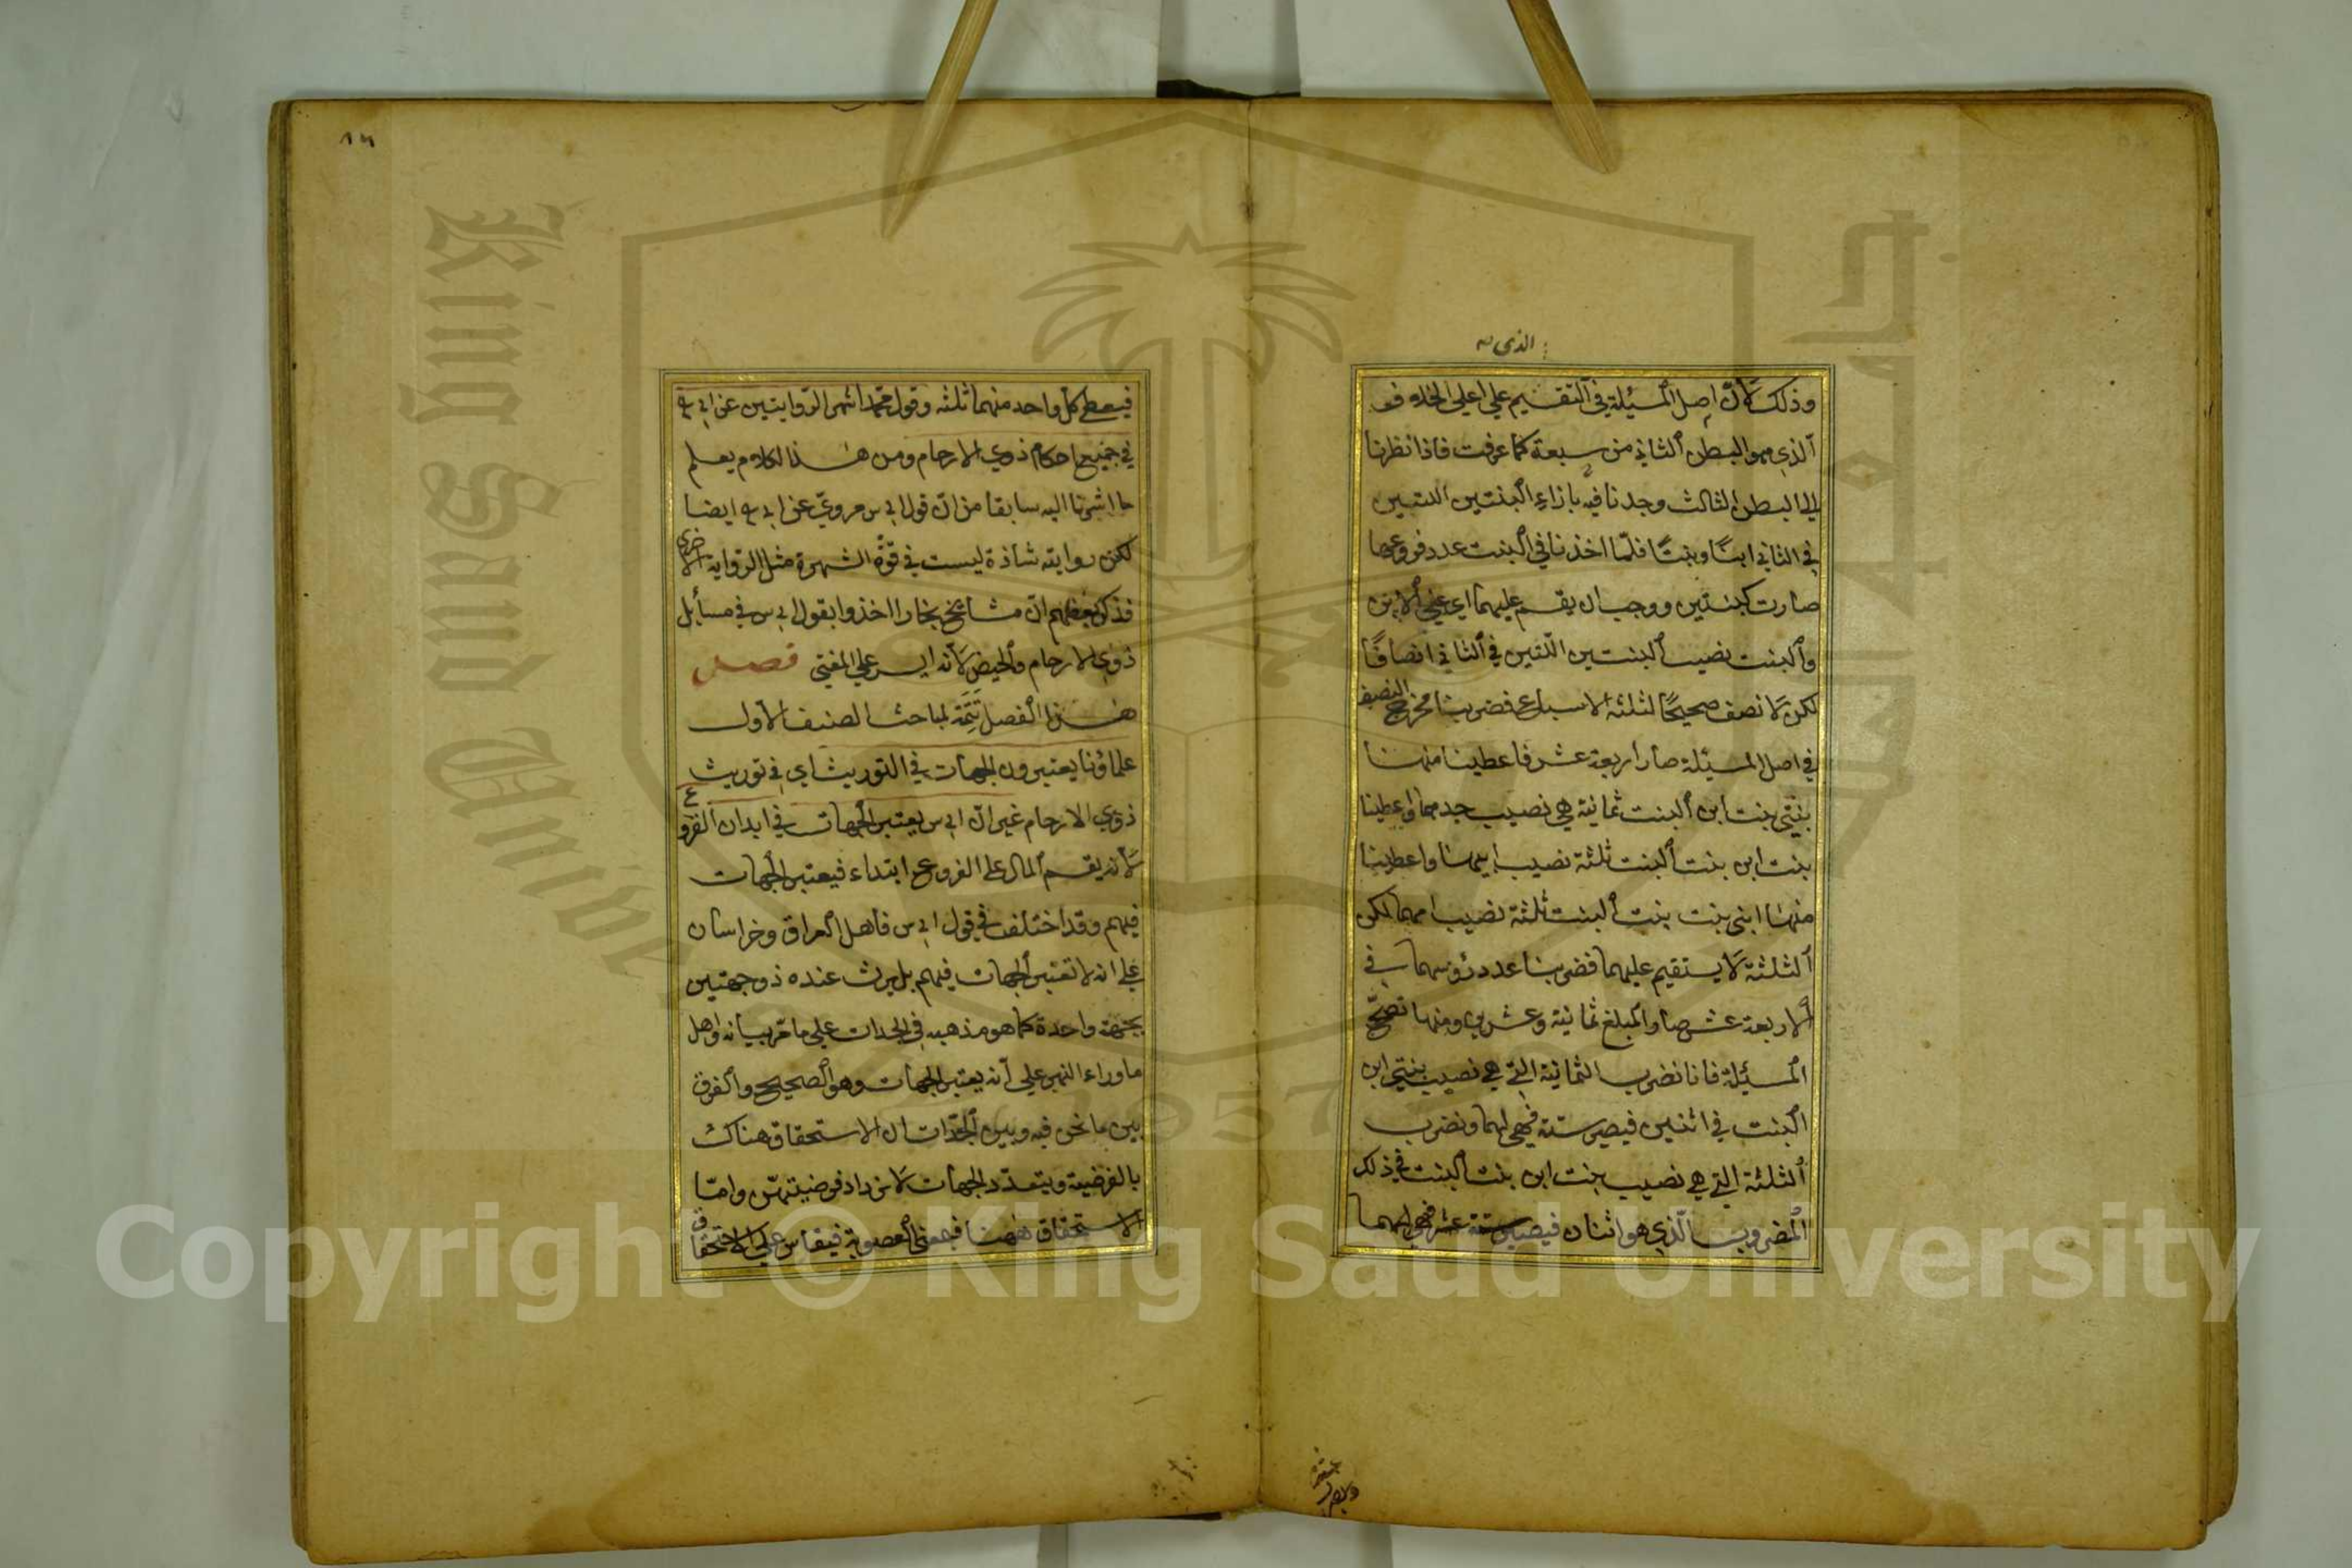 الذي
وذلك لأن اصل المسئلة في التقسيم علي اعلي الخلاف
الذي هو البطن الثاني من سبعة كما عرفت فاذا نظرنا
الي البطن الثالث وجدنا فيه بازاء البنتين اللتين
في الثاني ابنًا وبنتًا فلمّا اخذنا في البنت عدد فروعها
صارت كبنتين ووجب ان يقسم عليهما اي علي الابن
والبنت نصيب البنتين اللتين في الثاني انصافًا
لكن لا نصف صحيحًا لثلثة الاسباع فضربنا مخرج النصف
في اصل المسئلة صار اربعة عشر فاعطينا منها
بنتي بنت ابن البنت ثمانية هي نصيب جدهما واعطينا
بنت ابن بنت البنت ثلثة نصيب ابيها واعطينا
منها ابني بنت بنت البنت ثلثة نصيب امهما لكن
الثلثة لا يستقيم عليهما فضربنا عدد رؤسهما في
الاربعة عشر صار المبلغ ثمانية وعشرين ومنها تصحّ
المسئلة فانا نضرب الثمانية التي هي نصيب بنتي ابن
البنت في اثنين فيصير ستة فهي لهما ونضرب
الثلثة التي هي نصيب بنت ابن بنت البنت في ذلك
المضروب الّذي هو اثنان فيصير ستة عشر فهي لهما
١٦
فيعطي كل واحد منهما ثلثه وقول محمد اشهر الروايتين عن ابي ح
في جميع احكام ذوي الارحام ومن هذا الكلام يعلم
ما اشرنا اليه سابقا من انّ قول ابي س مرويّ عن ابي ح ايضا
لكن رواية شاذة ليست في قوّة الشهرة مثل الرواية الاخري
فذكر بعضهم انّ مشائخ بخارا اخذوا بقول ابي س في مسائل
ذوي الارحام والحيض لانه ايسر علي المفتي فصل
هذا الفصل تتمّة لمباحث الصنف الاول
علماؤنا يعتبرون الجهات في التوريث اي في توريث
ذوي الارحام غير انّ ابي س يعتبر الجهات في ابدان الفروع
لانه يقسم المال علي الفروع ابتداء فيعتبر الجهات
فيهم وقد اختلف في قول ابي س فاهل العراق وخراسان
علي انه لا تعتبر الجهات فيهم بل يرث عنده ذو جهتين
بجهة واحدة كما هو مذهبه في الجدات علي ما مرّ بيانه واهل
ماوراء النهر علي انه يعتبر الجهات وهو الصحيح والفرق
بين ما نحن فيه وبين الجدّات ان الاستحقاق هناك
بالفرضية وبتعدّد الجهات لا يزداد فرضيتهنّ وامّا
الاستحقاق ههنا فبمعني العصوبة فيقاس علي الاستحقاق
King Saud University
1957
Copyright © King Saud University